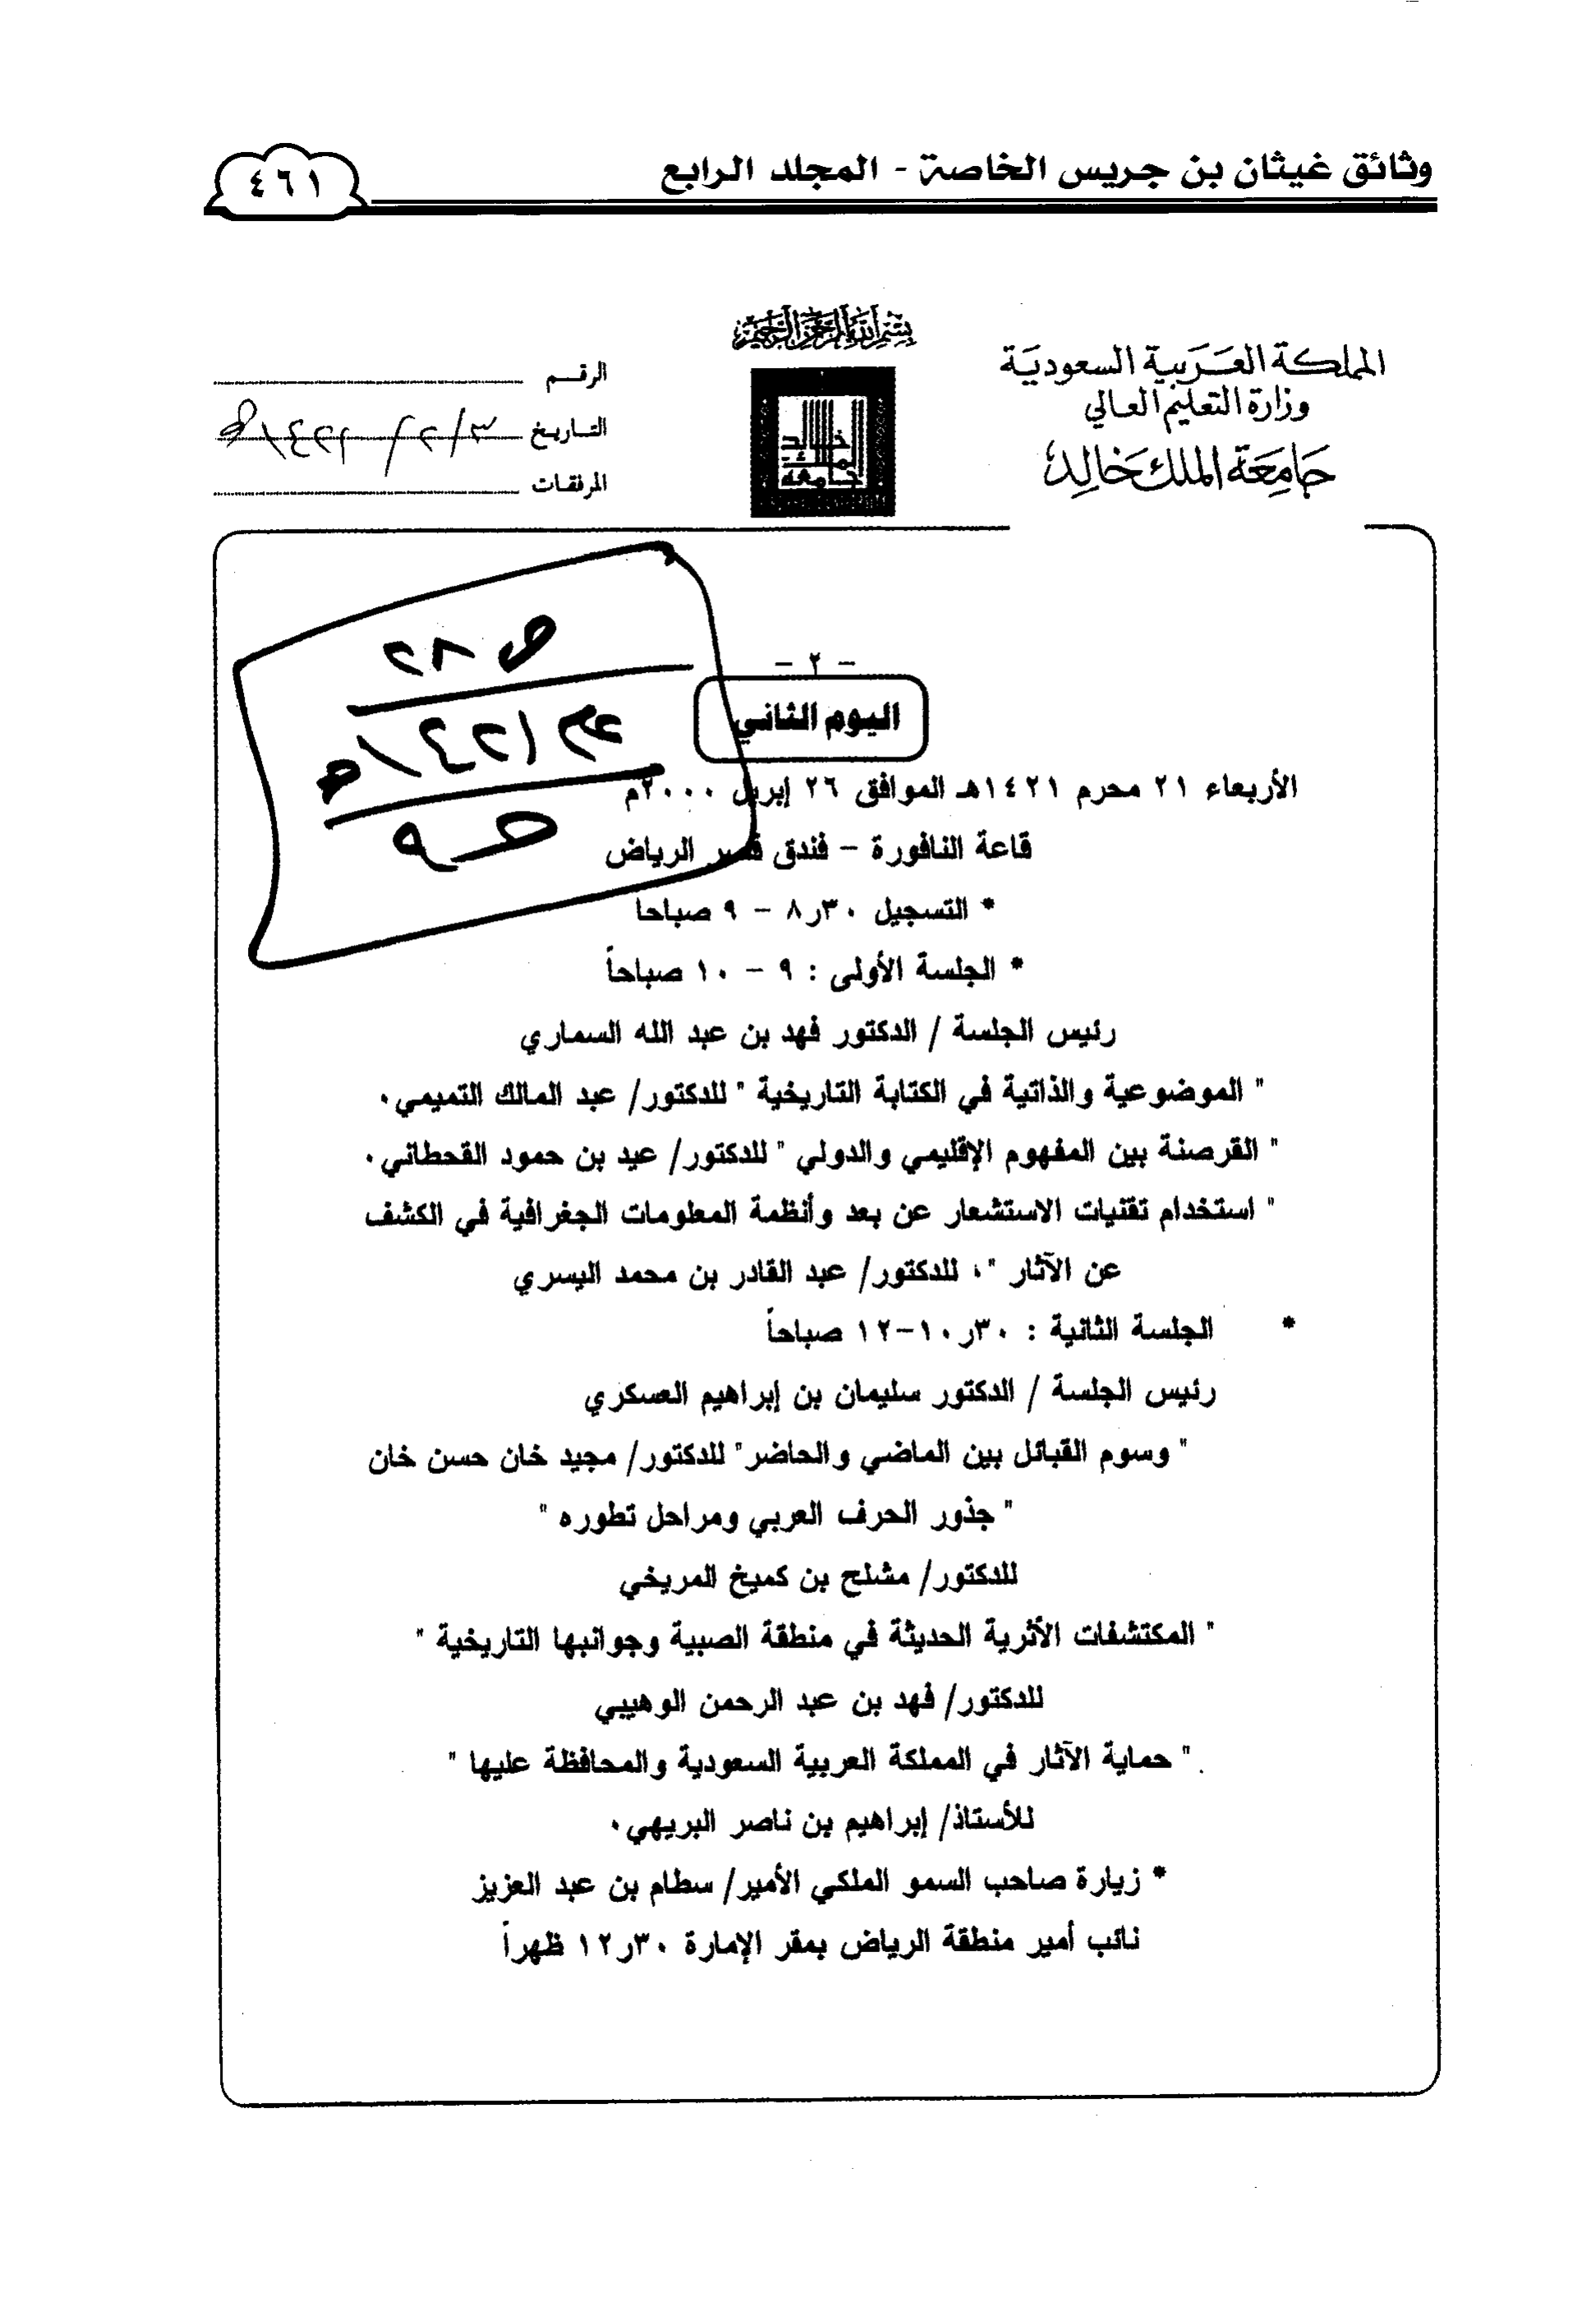 وثائق غيثان بن جريس الخاصة - المجلد الرابع
٤٦١
بسم الله الرحمن الرحيم
المملكة العربية السعودية
وزارة التعليم العالي
جامعة الملك خالد
خالد
الملك
جامعة
الرقم
التاريخ ٣/٢/١٤٢١هـ
المرفقات
ص ٨٢
- ٢ -
اليوم الثاني
الأربعاء ٢١ محرم ١٤٢١هـ الموافق ٢٦ إبريل ٢٠٠٠م
قاعة النافورة - فندق قصر الرياض
* التسجيل ٨٫٣٠ - ٩ صباحا
* الجلسة الأولى : ٩ - ١٠ صباحاً
رئيس الجلسة / الدكتور فهد بن عبد الله السماري
" الموضوعية والذاتية في الكتابة التاريخية " للدكتور/ عبد المالك التميمي٠
" القرصنة بين المفهوم الإقليمي والدولي " للدكتور/ عيد بن حمود القحطاني٠
" استخدام تقنيات الاستشعار عن بعد وأنظمة المعلومات الجغرافية في الكشف
عن الآثار "، للدكتور/ عبد القادر بن محمد اليسري
* الجلسة الثانية : ٣٠ر١٠-١٢ صباحاً
رئيس الجلسة / الدكتور سليمان بن إبراهيم العسكري
" وسوم القبائل بين الماضي والحاضر" للدكتور/ مجيد خان حسن خان
" جذور الحرف العربي ومراحل تطوره "
للدكتور/ مشلح بن كميخ المريخي
" المكتشفات الأثرية الحديثة في منطقة الصبية وجوانبها التاريخية "
للدكتور/ فهد بن عبد الرحمن الوهيبي
" حماية الآثار في المملكة العربية السعودية والمحافظة عليها "
للأستاذ/ إبراهيم بن ناصر البريهي٠
* زيارة صاحب السمو الملكي الأمير/ سطام بن عبد العزيز
نائب أمير منطقة الرياض بمقر الإمارة ٣٠ر١٢ ظهراً